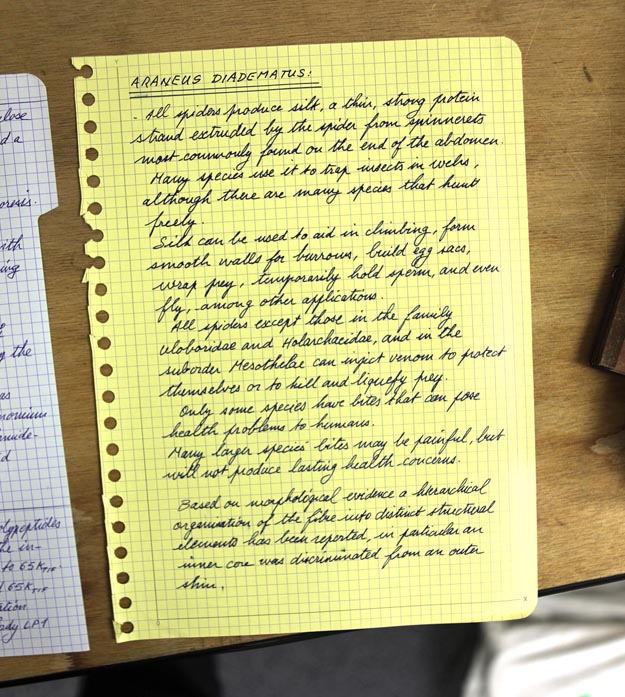 ARANEUS DIADEMATUS:
- All spiders produce silk, a thin, strong protein
strand extruded by the spider from spinnerets
most commonly found on the end of the abdomen.
Many species use it to trap insects in webs,
although there are many species that hunt
freely.
Silk can be used to aid in climbing, form
smooth walls for burrows, build egg sacs,
wrap prey, temporarily hold sperm, and even
fly, among other applications.
All spiders except those in the family
Uloboridae and Holarchaeidae, and in the
suborder Mesothelae can inject venom to protect
themselves or to kill and liquefy prey.
Only some species have bites that can pose
health problems to humans.
Many larger species' bites may be painful, but
will not produce lasting health concerns.
Based on morphological evidence a hierarchical
organisation of the fibre into distinct structural
elements has been reported, in particular an
inner core was discriminated from an outer
skin.
lose
d a
with
the
as
lypeptides
he in-
to 65K
65K
ation
body LP1